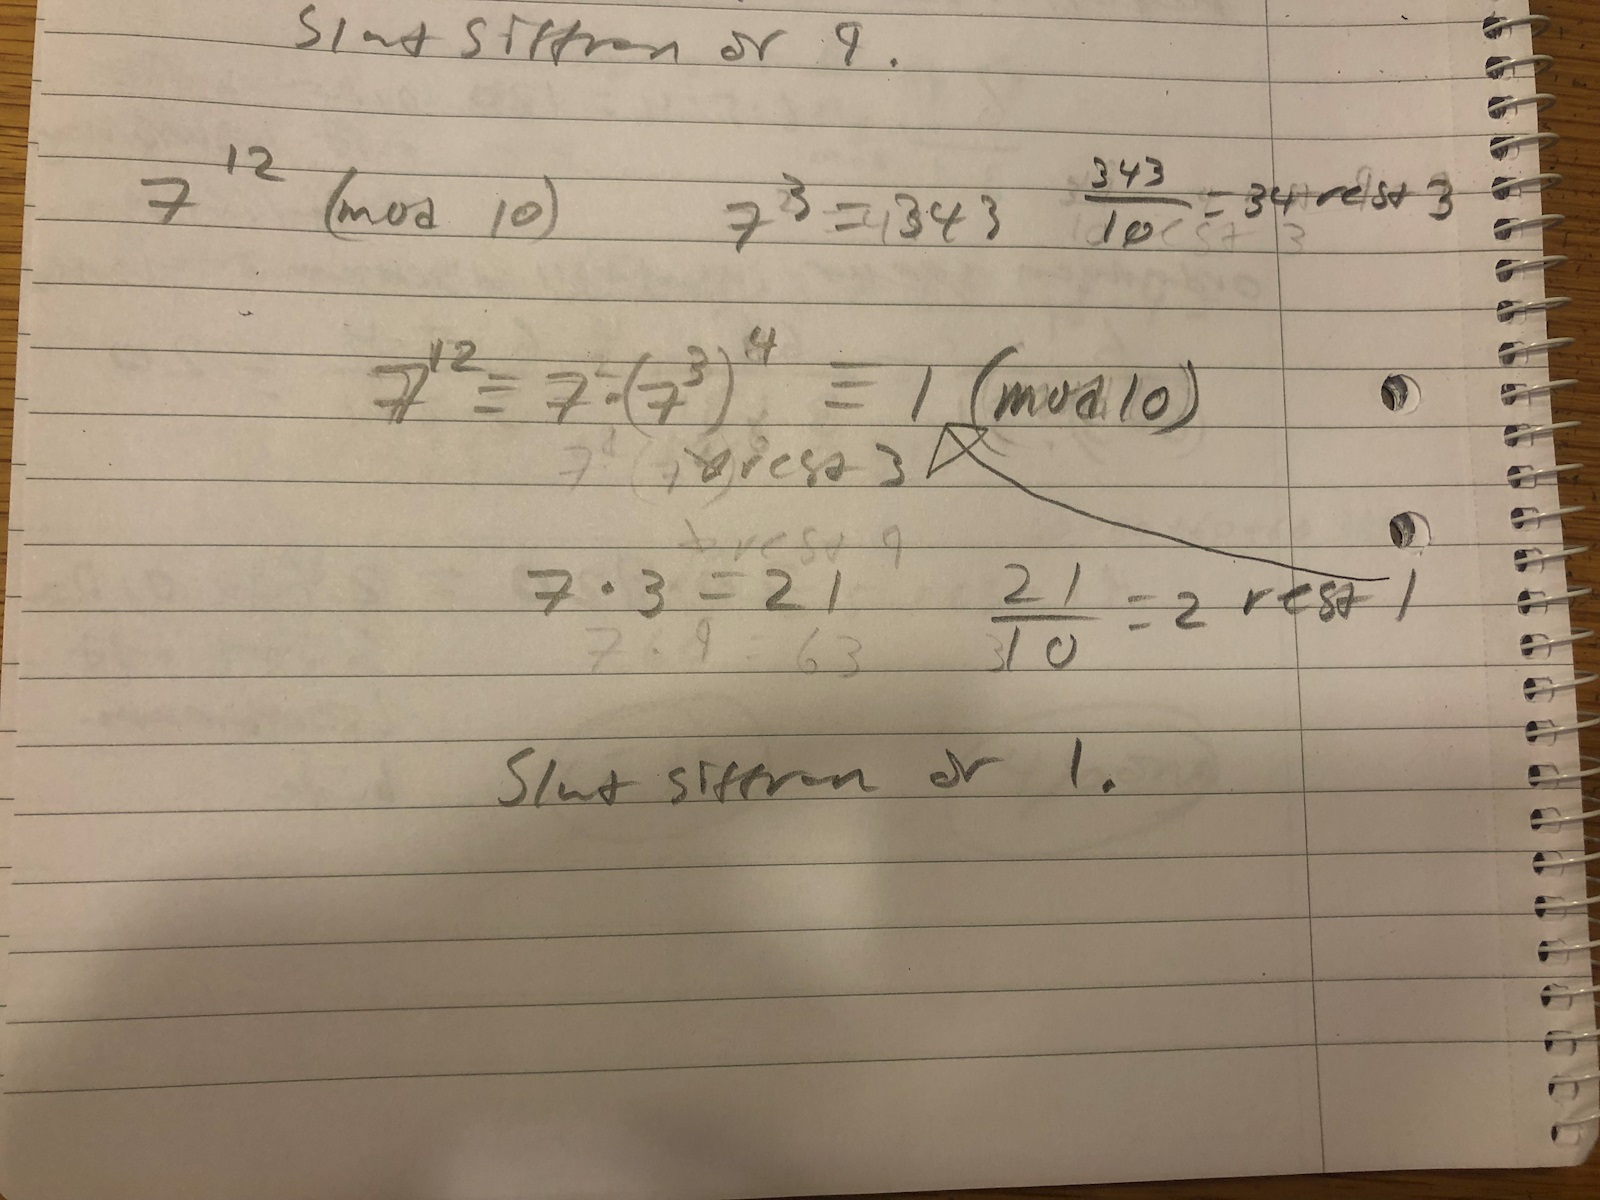 Slut siffran är 9.
7^12 (mod 10) 7^3 = 343 343/10 = 34 rest 3
7^12 ≡ 7·(7^3)^4 ≡ 1 (mod 10)
rest 3
7·3 = 21 21/10 = 2 rest 1
Slut siffran är 1.